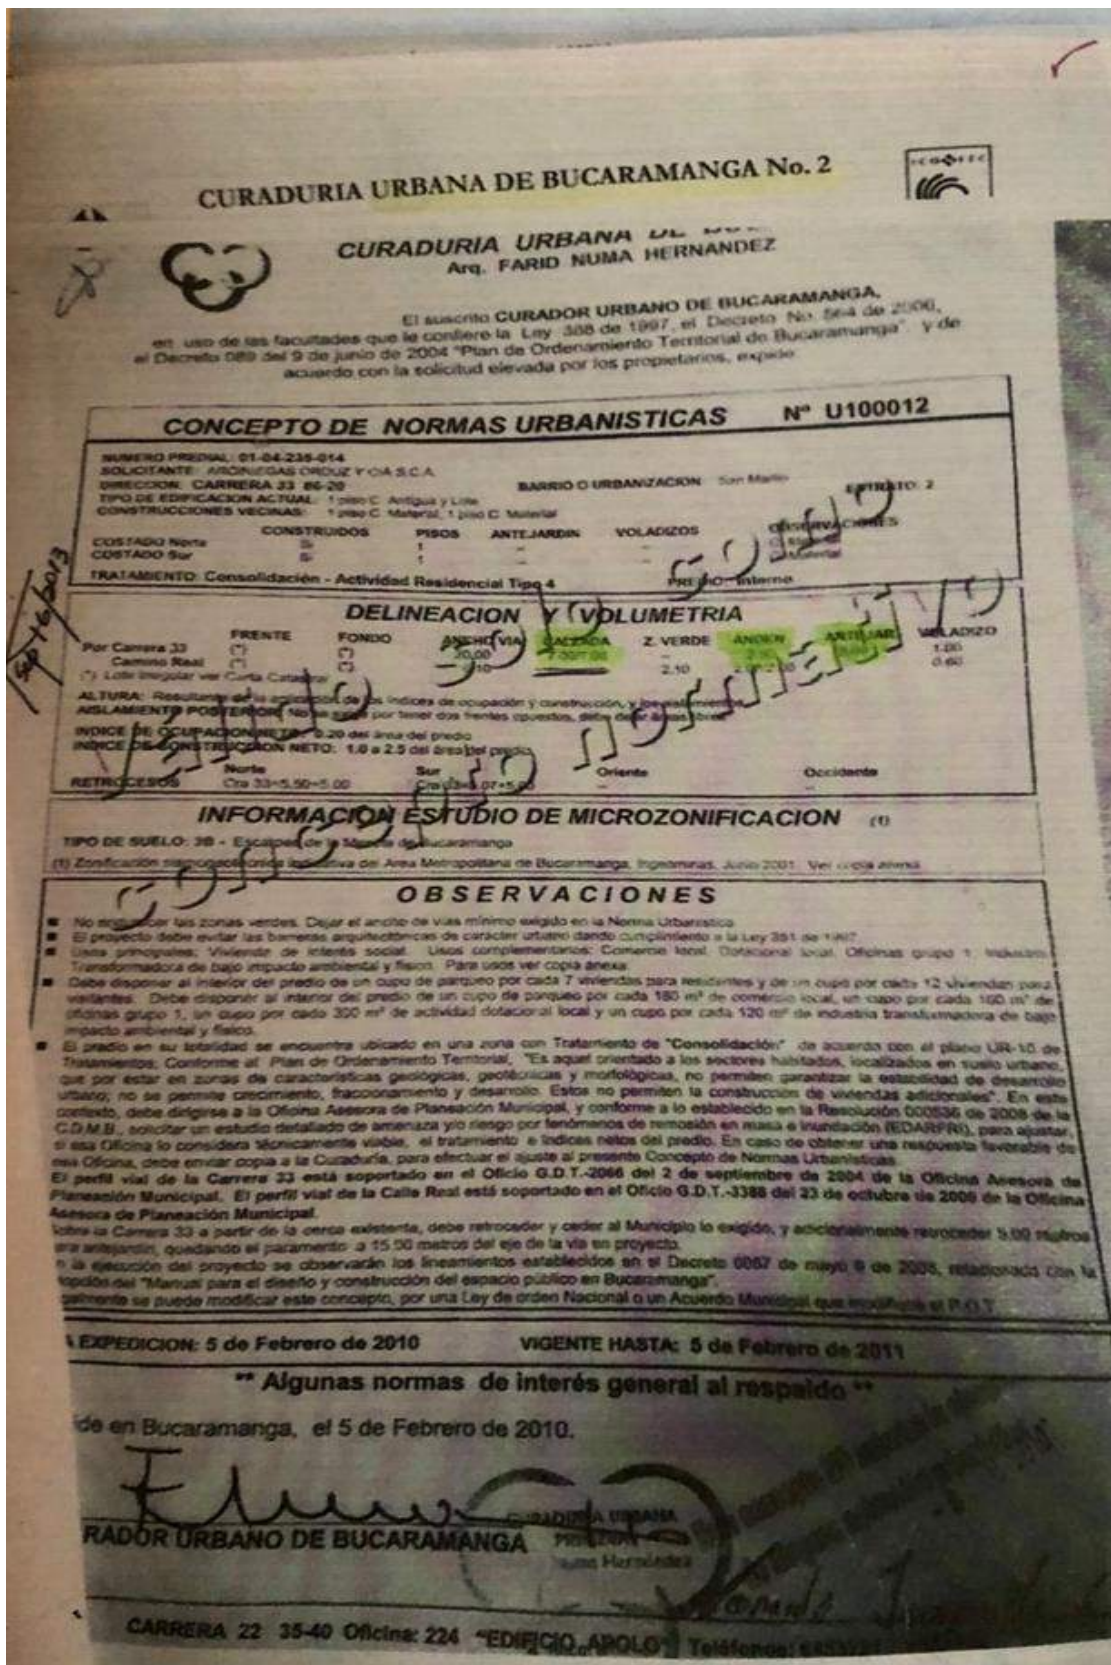 CURADURIA URBANA DE BUCARAMANGA No. 2
CURADURIA URBANA DE
Arq. FARID NUMA HERNANDEZ
El suscrito CURADOR URBANO DE BUCARAMANGA,
en uso de las facultades que le confiere la Ley 388 de 1997, el Decreto No. 564 de 2006,
el Decreto 089 del 9 de junio de 2004 "Plan de Ordenamiento Territorial de Bucaramanga" y de
acuerdo con la solicitud elevada por los propietarios, expide
CONCEPTO DE NORMAS URBANISTICAS Nº U100012
NUMERO PREDIAL: 01-04-235-014
SOLICITANTE: ARCINIEGAS ORDUZ Y CIA S.C.A.
DIRECCION: CARRERA 33 86-20 BARRIO O URBANIZACION: San Martin ESTRATO: 2
TIPO DE EDIFICACION ACTUAL: 1 piso C. Antigua y Lote
CONSTRUCCIONES VECINAS: 1 piso C. Material, 1 piso C. Material
CONSTRUIDOS PISOS ANTEJARDIN VOLADIZOS OBSERVACIONES
COSTADO Norte Si 1 - - C. Material
COSTADO Sur Si 1 - - C. Material
TRATAMIENTO: Consolidación - Actividad Residencial Tipo 4 PREDIO: Interno
Sep 16/2013
DELINEACION Y VOLUMETRIA
FRENTE FONDO ANCHO VIA CALZADA Z. VERDE ANDEN ANTEJAR VOLADIZO
Por Carrera 33 (*) (*) 20.00 - 1.00
Camino Real (*) (*) 2.10 0.60
(*) Lote Irregular ver Carta Catastral
ALTURA: Resultante de la aplicación de los índices de ocupación y construcción, y los aislamientos
AISLAMIENTO POSTERIOR: No se exige por tener dos frentes opuestos, debe dejar áreas libres
INDICE DE OCUPACION NETO: 0.20 del área del predio
INDICE DE CONSTRUCCION NETO: 1.0 a 2.5 del área del predio
Norte Sur Oriente Occidente
RETROCESOS Cra 33=5.50+5.00 - -
Válido como concepto normativo
INFORMACION ESTUDIO DE MICROZONIFICACION (1)
TIPO DE SUELO: 3B - Escarpes de la Meseta de Bucaramanga
(1) Zonificación sismogeotécnica indicativa del Area Metropolitana de Bucaramanga, Ingeominas, Junio 2001. Ver copia anexa.
OBSERVACIONES
No endurecer las zonas verdes. Dejar el ancho de vías mínimo exigido en la Norma Urbanística
El proyecto debe evitar las barreras arquitectónicas de carácter urbano dando cumplimiento a la Ley 361 de 1997
Usos principales: Vivienda de interés social. Usos complementarios: Comercio local, Dotacional local, Oficinas grupo 1, Industria
Transformadora de bajo impacto ambiental y físico. Para usos ver copia anexa
Debe disponer al interior del predio de un cupo de parqueo por cada 7 viviendas para residentes y de un cupo por cada 12 viviendas para
visitantes. Debe disponer al interior del predio de un cupo de parqueo por cada 180 m² de comercio local, un cupo por cada 160 m² de
oficinas grupo 1, un cupo por cada 300 m² de actividad dotacional local y un cupo por cada 120 m² de industria transformadora de bajo
impacto ambiental y físico.
El predio en su totalidad se encuentra ubicado en una zona con Tratamiento de "Consolidación" de acuerdo con el plano UR-10 de
Tratamientos; Conforme al Plan de Ordenamiento Territorial, "Es aquel orientado a los sectores habitados, localizados en suelo urbano,
que por estar en zonas de características geológicas, geotécnicas y morfológicas, no permiten garantizar la estabilidad de desarrollo
urbano; no se permite crecimiento, fraccionamiento y desarrollo. Estos no permiten la construcción de viviendas adicionales". En este
contexto, debe dirigirse a la Oficina Asesora de Planeación Municipal, y conforme a lo establecido en la Resolución 000536 de 2008 de la
C.D.M.B., solicitar un estudio detallado de amenaza y/o riesgo por fenómenos de remoción en masa e inundación (EDARFRI), para ajustar,
si esa Oficina lo considera técnicamente viable, el tratamiento e índices netos del predio. En caso de obtener una respuesta favorable de
esa Oficina, debe enviar copia a la Curaduría, para efectuar el ajuste al presente Concepto de Normas Urbanísticas
El perfil vial de la Carrera 33 está soportado en el Oficio G.D.T.-2066 del 2 de septiembre de 2004 de la Oficina Asesora de
Planeación Municipal. El perfil vial de la Calle Real está soportado en el Oficio G.D.T.-3388 del 23 de octubre de 2009 de la Oficina
Asesora de Planeación Municipal.
Sobre la Carrera 33 a partir de la cerca existente, debe retroceder y ceder al Municipio lo exigido, y adicionalmente retroceder 5.00 metros
para antejardín, quedando el paramento a 15.00 metros del eje de la vía en proyecto.
n la ejecución del proyecto se observarán los lineamientos establecidos en el Decreto 0067 de mayo 9 de 2008, relacionado con la
opción del "Manual para el diseño y construcción del espacio público en Bucaramanga".
galmente se puede modificar este concepto, por una Ley de orden Nacional o un Acuerdo Municipal que modifique el P.O.T.
A EXPEDICION: 5 de Febrero de 2010 VIGENTE HASTA: 5 de Febrero de 2011
** Algunas normas de interés general al respaldo **
ide en Bucaramanga, el 5 de Febrero de 2010.
RADOR URBANO DE BUCARAMANGA
CURADURIA URBANA
Numa Hernández
CARRERA 22 35-40 Oficina: 224 "EDIFICIO APOLO" Teléfonos: